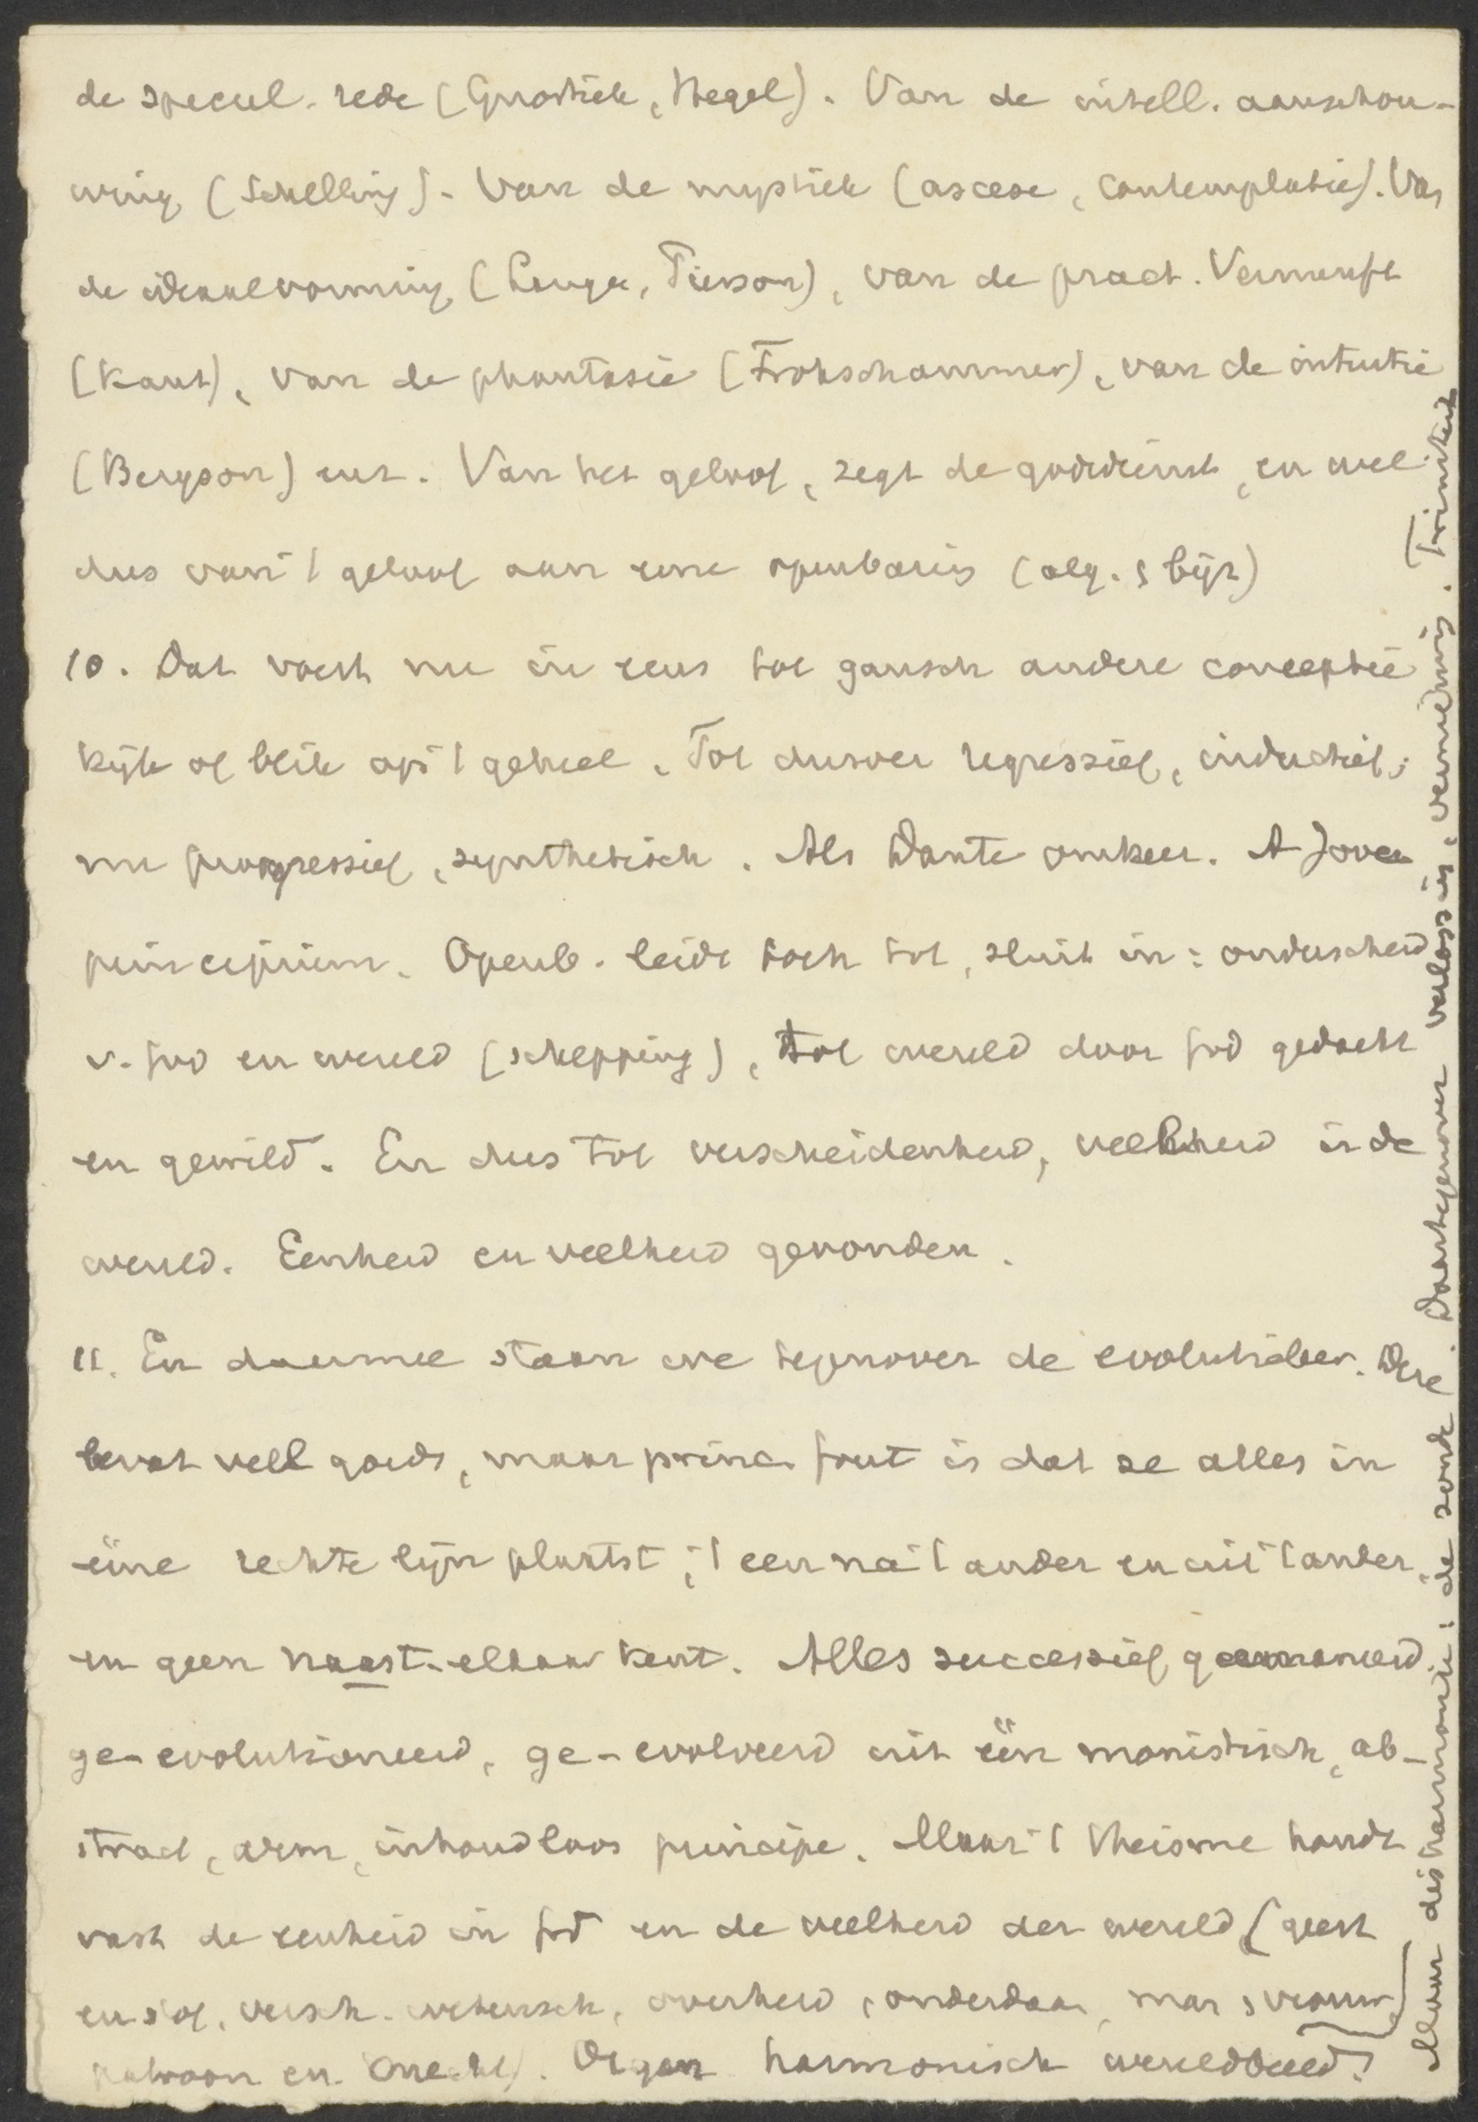 de specul. rede (Gnostiek, Hegel). Van de intell. aanschou-
wing (Schelling). Van de mystiek (ascese, contemplatie). Van
de ideaalvorming (Lange, Pierson), van de pract. Vernunft
(Kant), van de phantasie (Frohschammer), van de intuitie
(Bergson) enz. Van het geloof, zegt de godsdienst, en wel
dus van 't geloof aan eene openbaring (alg. & bijz)
10. Dat voert nu in eens tot gansch andere conceptie
kijk of blik op 't geheel. Tot dusver regressief, inductief;
nu progressief, synthetisch. Als Dante omkeer. A Jove
principium. Openb. leidt toch tot, sluit in: onderscheid
v. God en wereld (schepping), tot wereld door God gedacht
en gewild. En dus tot verscheidenheid, veelheid in de
wereld. Eenheid en veelheid gevonden.
11. En daarmee staan we tegenover de evolutieleer. Deze
bevat veel goeds, maar princ. fout is dat ze alles in
eene rechte lijn plaatst, 't een na 't ander en uit 't ander,
en geen naast-elkaar kent. Alles successief geemaneerd
ge-evolutioneerd, ge-evolveerd uit één monistisch, ab-
stract, arm, inhoudloos principe. Maar 't theisme houdt
vast de eenheid in God en de veelheid der wereld (geest
en stof, versch. wetensch., overheid, onderdaan, man & vrouw,
patroon en knecht). Organ harmonisch wereldbeeld.
Maar disharmonie: de zonde. Daartegenover verlossing, vernieuwing. Triniteit